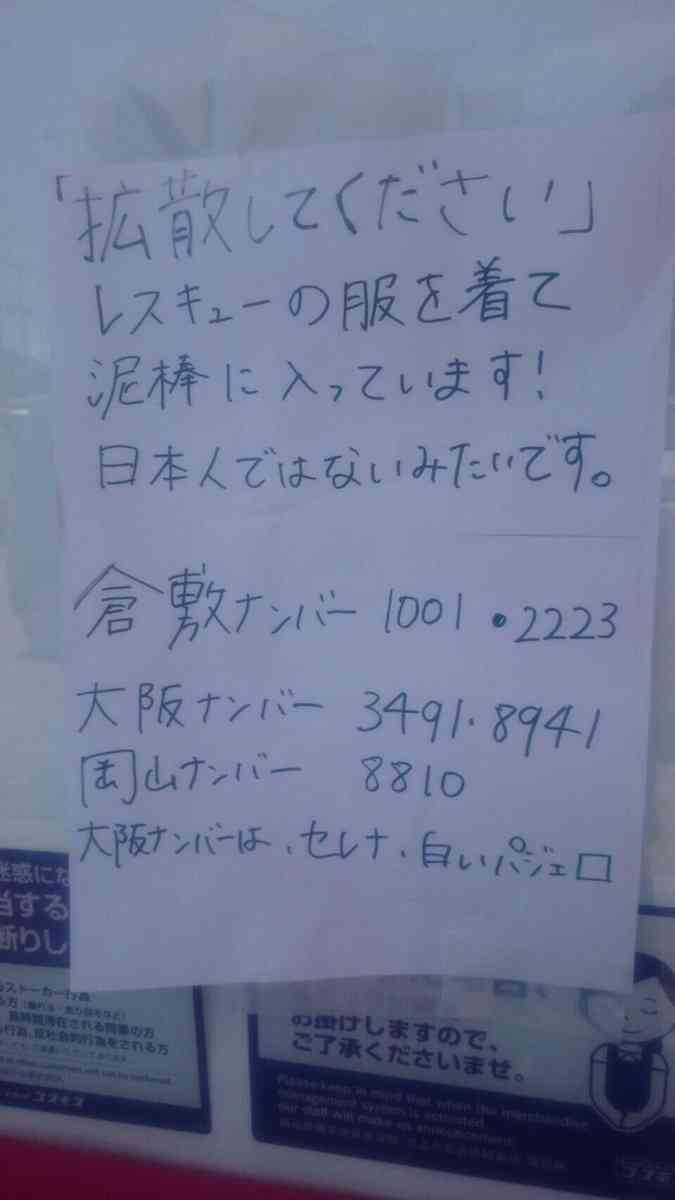 「拡散してください」
レスキューの服を着て
泥棒に入っています!
日本人ではないみたいです。
倉敷ナンバー 1001・2223
大阪ナンバー 3491・8941
岡山ナンバー 8810
大阪ナンバーは、セレナ、白いパジェロ
迷惑にな
当する
断りし
ストーカー行為
長時間滞在される同業の方
行為、反社会的行為をされる方
コスモス
お掛けしますので、
ご了承くださいませ。
Please keep in mind that when the merchandise
management system is activated
our staff will make an announcement.